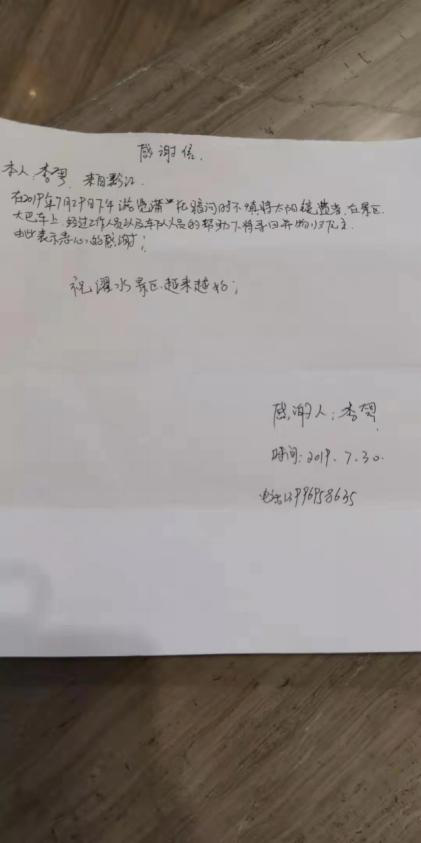 感谢信.
本人 李 来自黔江.
在2019年7月29日下午游览蒲花暗河时不慎将太阳镜遗落在景区
大巴车上,经过工作人员以及车队人员的帮助下将寻回并物归主.
由此表示衷心的感谢;
祝濯水景区越来越好;
感谢人:李
时间:2019.7.30.
电话13996958635